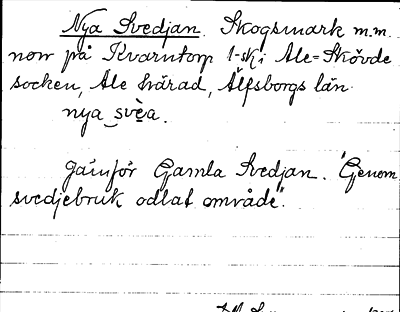 Nya Svedjan. Skogsmark m.m.
norr på Kvarntorp 1-sk i Ale-Skövde
socken, Ale härad, Älfsborgs län.
nya svèa.
Jämför Gamla Svedjan. "Genom
svedjebruk odlat område".